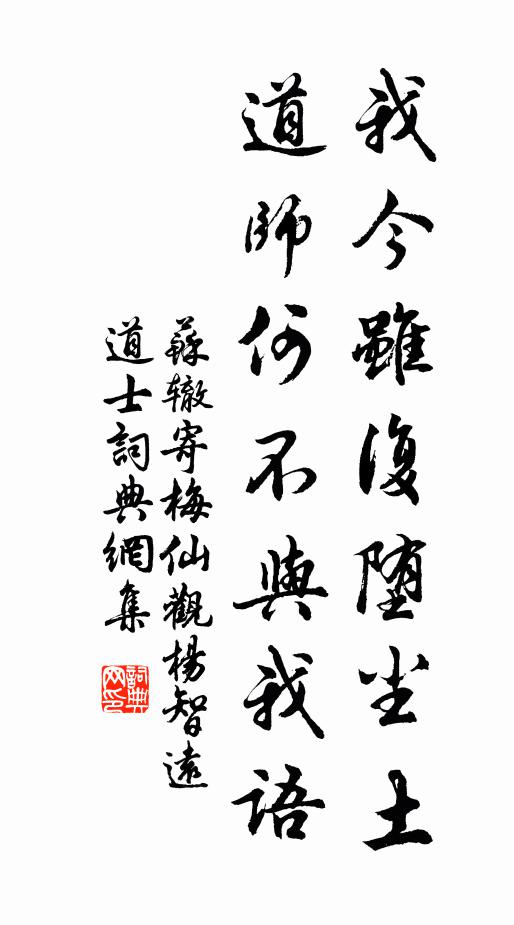 我今雖復堕尘土
道師何不與我語
蘇辙寄梅仙觀楊智遠
道士詞典網集
詞典网印